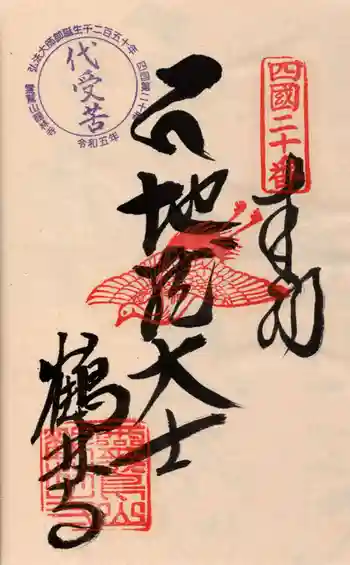 四國二十番
奉納
地蔵大士
鶴林寺
弘法大師御誕生千二百五十年
代受苦
令和五年